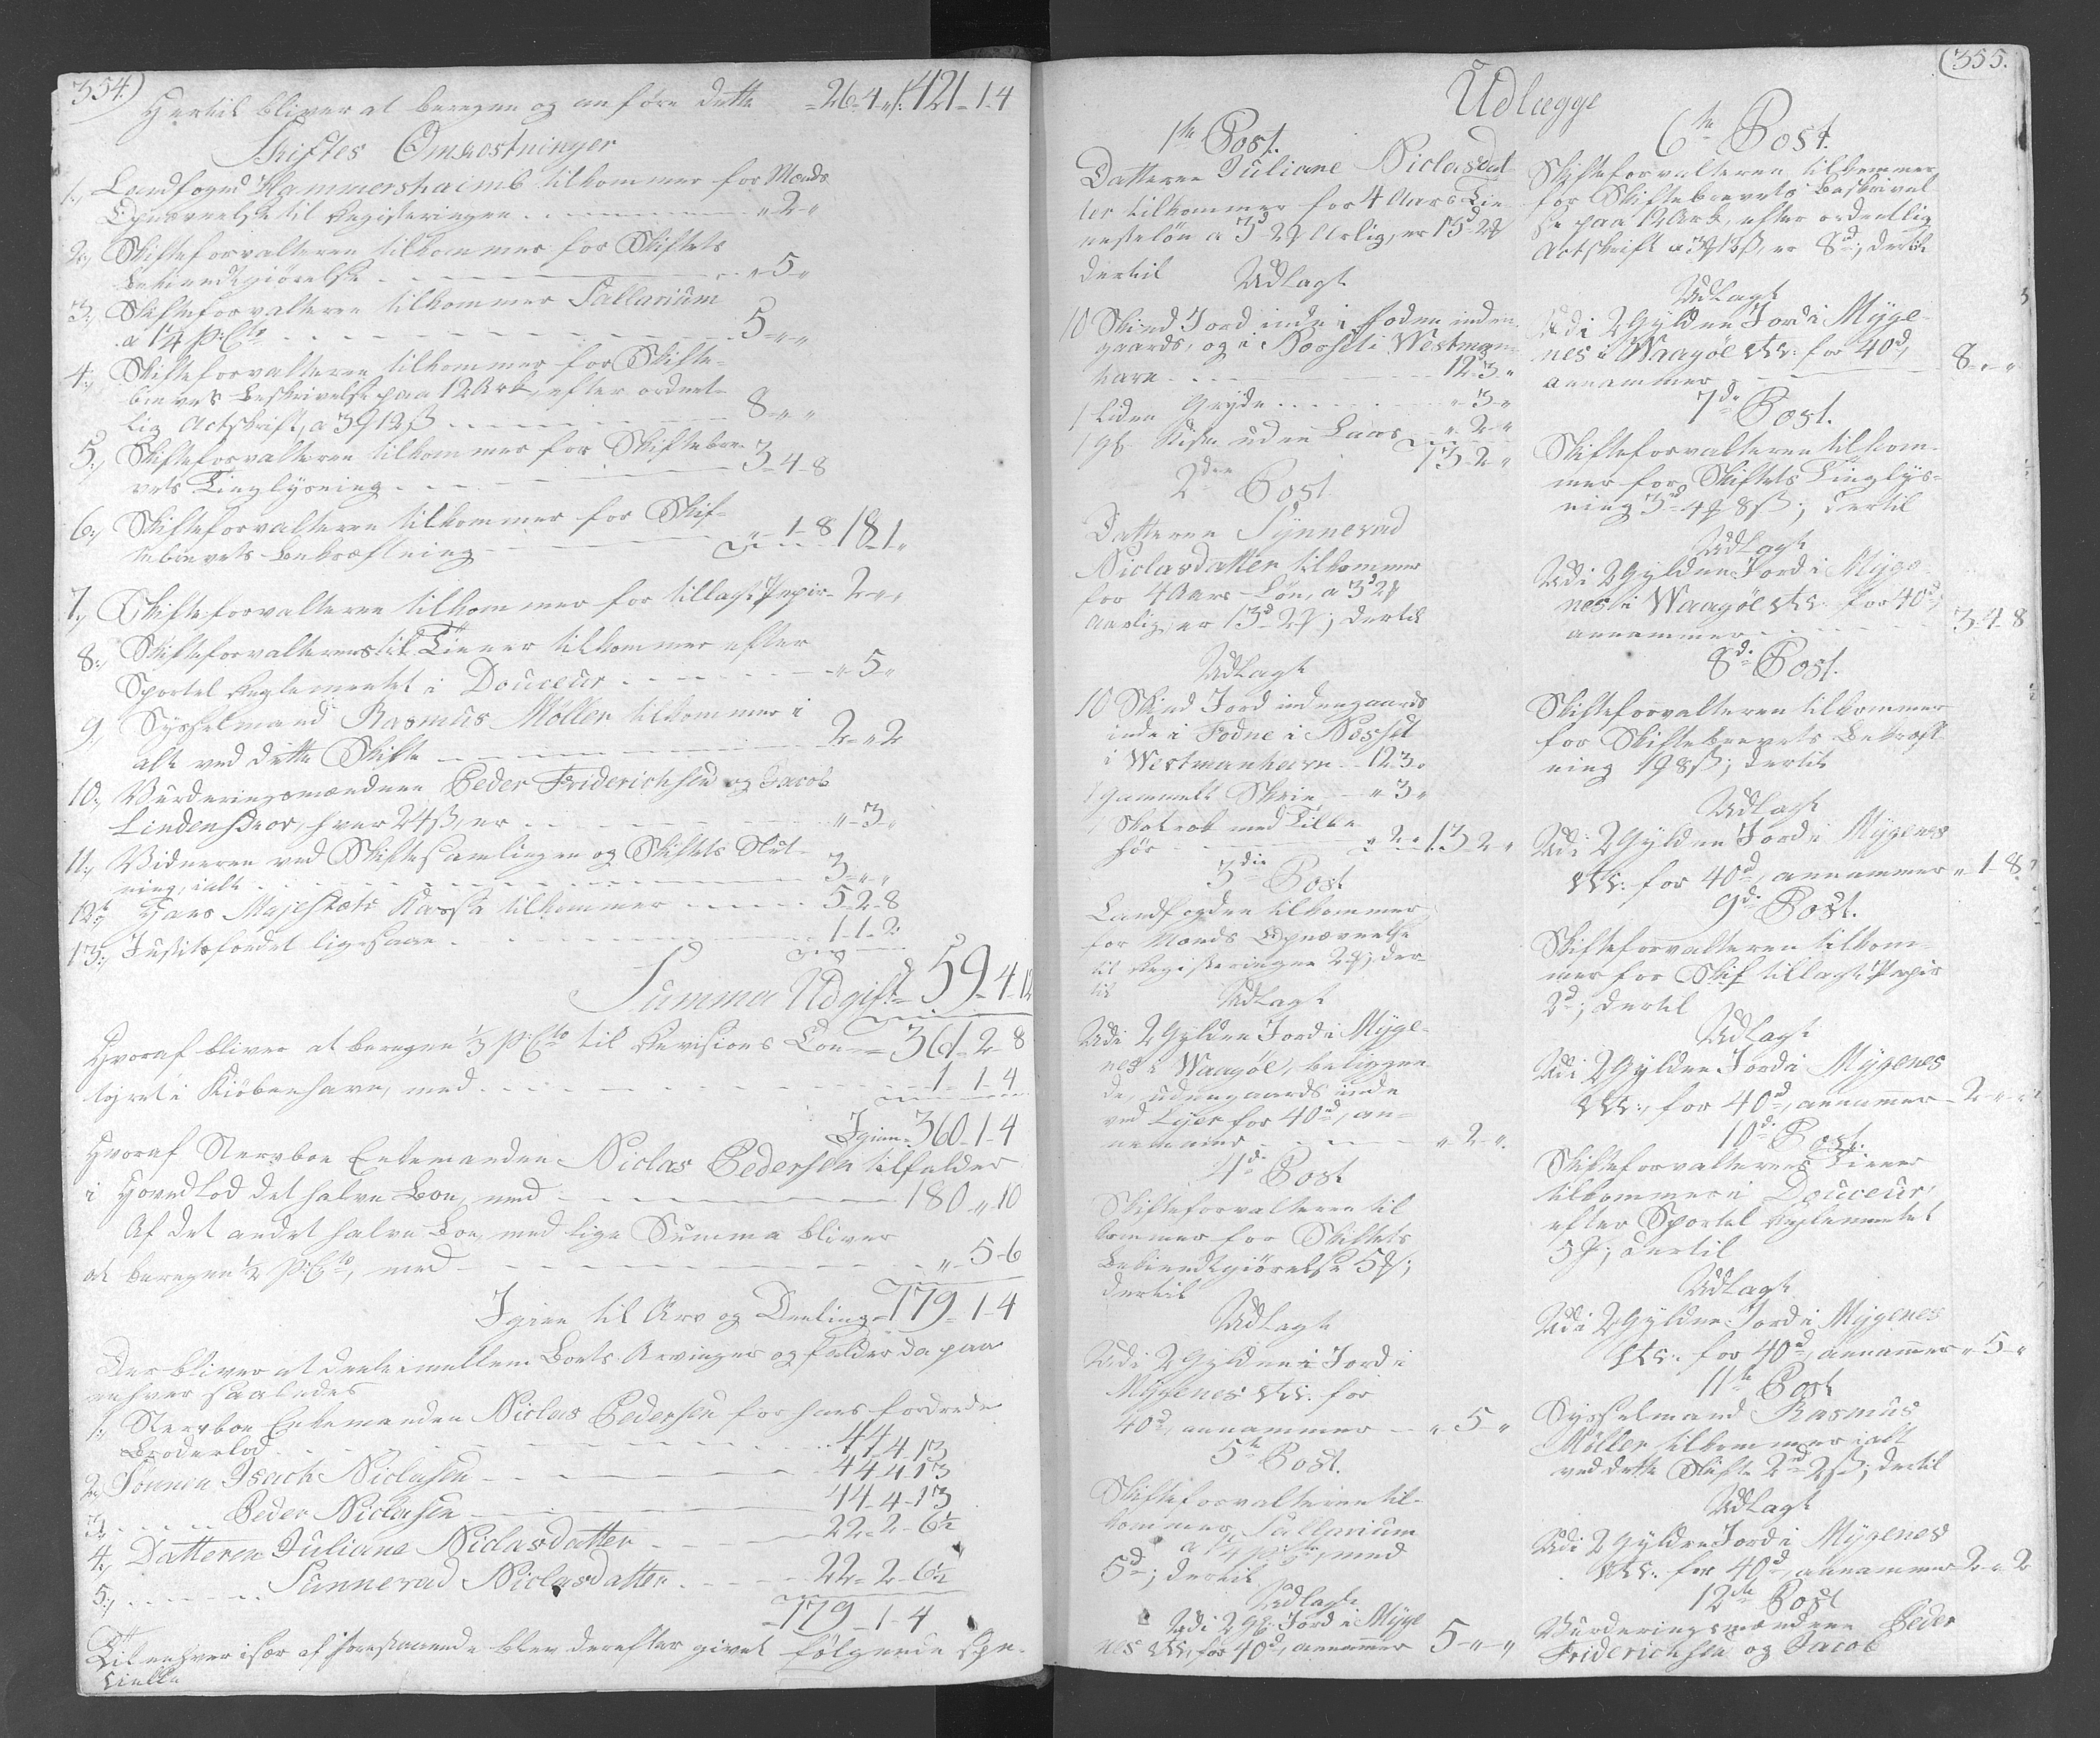 354.)
Hertil bliver at beregne og anføre dette = 26-4-" 421-1-4
Skiftes Omkostninger
1, Landfoged Hammershaimb tilkommer for Mænds
Opnævnelse til Registeringen "-2-"
2, Skifteforvalteren tilkommer for Skiftets
Bekiendtgiørelse "-5-"
3, Skifteforvalteren tilkommer Sallarium
a 1¼ p:Cto 5-"-"
4, Skifteforvalteren tilkommer for Skifte-
brevets Beskrivelse paa 12 Ark, efter ordent-
lig Actskrift, a 3 12ß 8-"-"
5, Skifteforvalteren tilkommer for Skiftebre-
vets Tinglysning 3-4-8
6, Skifteforvalteren tilkommer for Skif-
tebrevets Bekræftning "-1-8 18-1-"
7, Skifteforvalteren tilkommer for tillagt Papir 2-"-"
8, Skifteforvalterens Tiener tilkommer efter
Sportel Reglementet i Douceur "-5-"
9, Sysselmand Rasmus Møller tilkommer i
alt ved dette Skifte 2-"-2
10, Vurderingsmændene Peder Friderichsen og Jacob
Lindenskov, hver 24ß, er "-3-"
11, Vidneren ved Skiftesamlingen og Skiftets Slut-
ning, ialt 3-"-"
12, Hans Majestæts Kassa tilkommer 5-2-8
13, Justitsfondet ligesaa 1-1-2
Summa Udgift = 59-4-12
361-2-8
Hvoraf bliver at beregne ⅓ p:Cto til Revisions Con-
toiret i Kiöbenhavn, med 1-1-4
Igien = 360-1-4
Hvoraf Stervboe Enkemanden Niclas Pedersen tilfalder
i Hovedlod det halve Boe, med 180-"-10
Af det andet halve Boe, med lige Summa bliver
at beregne ½ p:Cto, med "-5-6
Igien til Arv og Deeling = 179-1-4
Der bliver at deele imellem Boets Arvinger og falder da paa
enhver saaledes
1, Stervboe Enkemanden Niclas Pedersen for hans fordrede
Broderlod 44-4-13
2, Sönnen Isach Niclasen 44-4-13
3, Peder Niclasen 44-4-13
4, Datteren Juliane Niclasdatter 22-2-6½
5, Sunnevad Niclasdatter 22-2-6½
= 179-1-4
Til enhver især af forestaaende blev derefter givet følgende spe-
cielle
(355.
Udlægge
1te Post.
Datteren Juliane Niclasdat
ter tilkommer for 4 Aars Tie
nesteløn a 3d 2 Aarlig, er 13d 2
dertil
Udlagt
10 Skind Jord inde i Fodne inden
gaards, og i Norsti i Westman
havn 12-3-"
1 liden Gryde "-3-"
1 Kiste uden Laas "-2-"
13-2-"
2den Post
Datteren Synnevad
Niclasdatter tilkommer
for 4 Aars Løn, a 3d 2
Aarlig, er 13d 2; dertil
Udlagt
10 Skind Jord indengaards
inde i Fodne i Norsti
i Westmanhavn 12-3-"
1 gammelt Skrin "-3-"
1 med Tilbe
hør "-2-" 13-2-"
3die Post
Landfogden tilkommer
for Mænds Opnævnelse
til Registeringen 2; der-
til
Udlagt
Udi 2 Gylden Jord i Myge-
nes i Waagöe, beliggen
de, udengaards inde
ved for 40d, an-
nammer "-2-"
4de Post
Skifteforvalteren til
kommer for Skiftets
Bekiendtgiørelse 5;
dertil
Udlagt
Udi 2 Gylden Jord i
Mygenes etc. for
40d, annammer "-5-"
5te Post.
Skifteforvalteren til-
kommer Sallarium
a 1¼ p:Cto, med
5d; dertil
Udlagt
Udi 2 Gl. Jord i Myge
nes etc. for 40d, annammer 5-"-"
6te Post.
Skifteforvalteren tilkommer
for Skiftebrevets Beskrivel
se paa 12 Ark, efter ordentlig
Actskrift a 3 12ß, er 8d; dertil
Udlagt
Udi 2 Gylden Jord i Myge-
nes i Waagöe etc. for 40d,
annammer 8-"-"
7de Post.
Skifteforvalteren tilkom-
mer for Skiftets Tinglys-
ning 3d 4 8ß; dertil
Udlagt
Udi 2 Gylden Jord i Myge-
nes i Waagöe etc. for 40d,
annammer 3-4-8
8de Post.
Skifteforvalteren tilkommer
for Skiftebrevets Bekræft
ning 1 8ß; dertil
Udlagt
Udi 2 Gylden Jord i Mygenes
etc. for 40d, annammer "-1-8
9de Post.
Skifteforvalteren tilkom-
mer for Skif tillagt Papir
2d; dertil
Udlagt
Udi 2 Gylden Jord i Mygenes
etc. for 40d, annammer 2-"-"
10de Post.
Skifteforvalterens Tiener
tilkommer i Douceur,
efter Sportel Reglementet
5; dertil
Udlagt
Udi 2 Gylden Jord i Mygenes
etc. for 40d, annammer "-5-"
11te Post
Sysselmand Rasmus
Møller tilkommer i alt
ved dette Skifte 2d 2ß; dertil
Udlagt
Udi 2 Gylden Jord i Mygenes
etc. for 40d, annammer 2-"-2
12te Post
Vurderingsmændene Peder
Friderichsen og Jacob